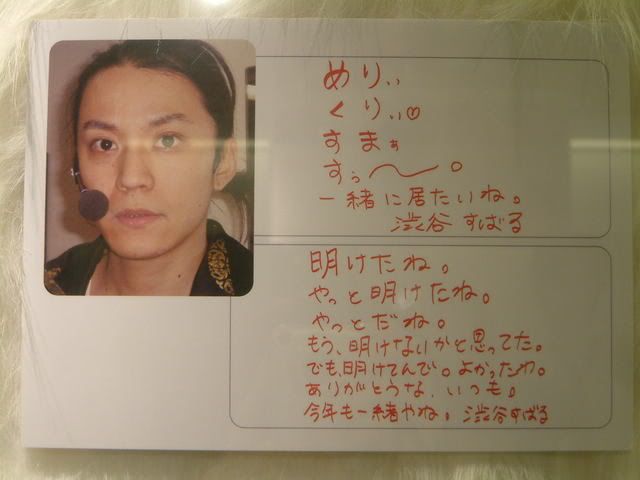 めりぃ
くりぃ♡
すまぁ
すぅ〜。
一緒に居たいね。
渋谷すばる
明けたね。
やっと明けたね。
やっとだね。
もう、明けないかと思ってた。
でも、明けてんで。よかったわ。
ありがとうな、いつも。
今年も一緒やね。渋谷すばる